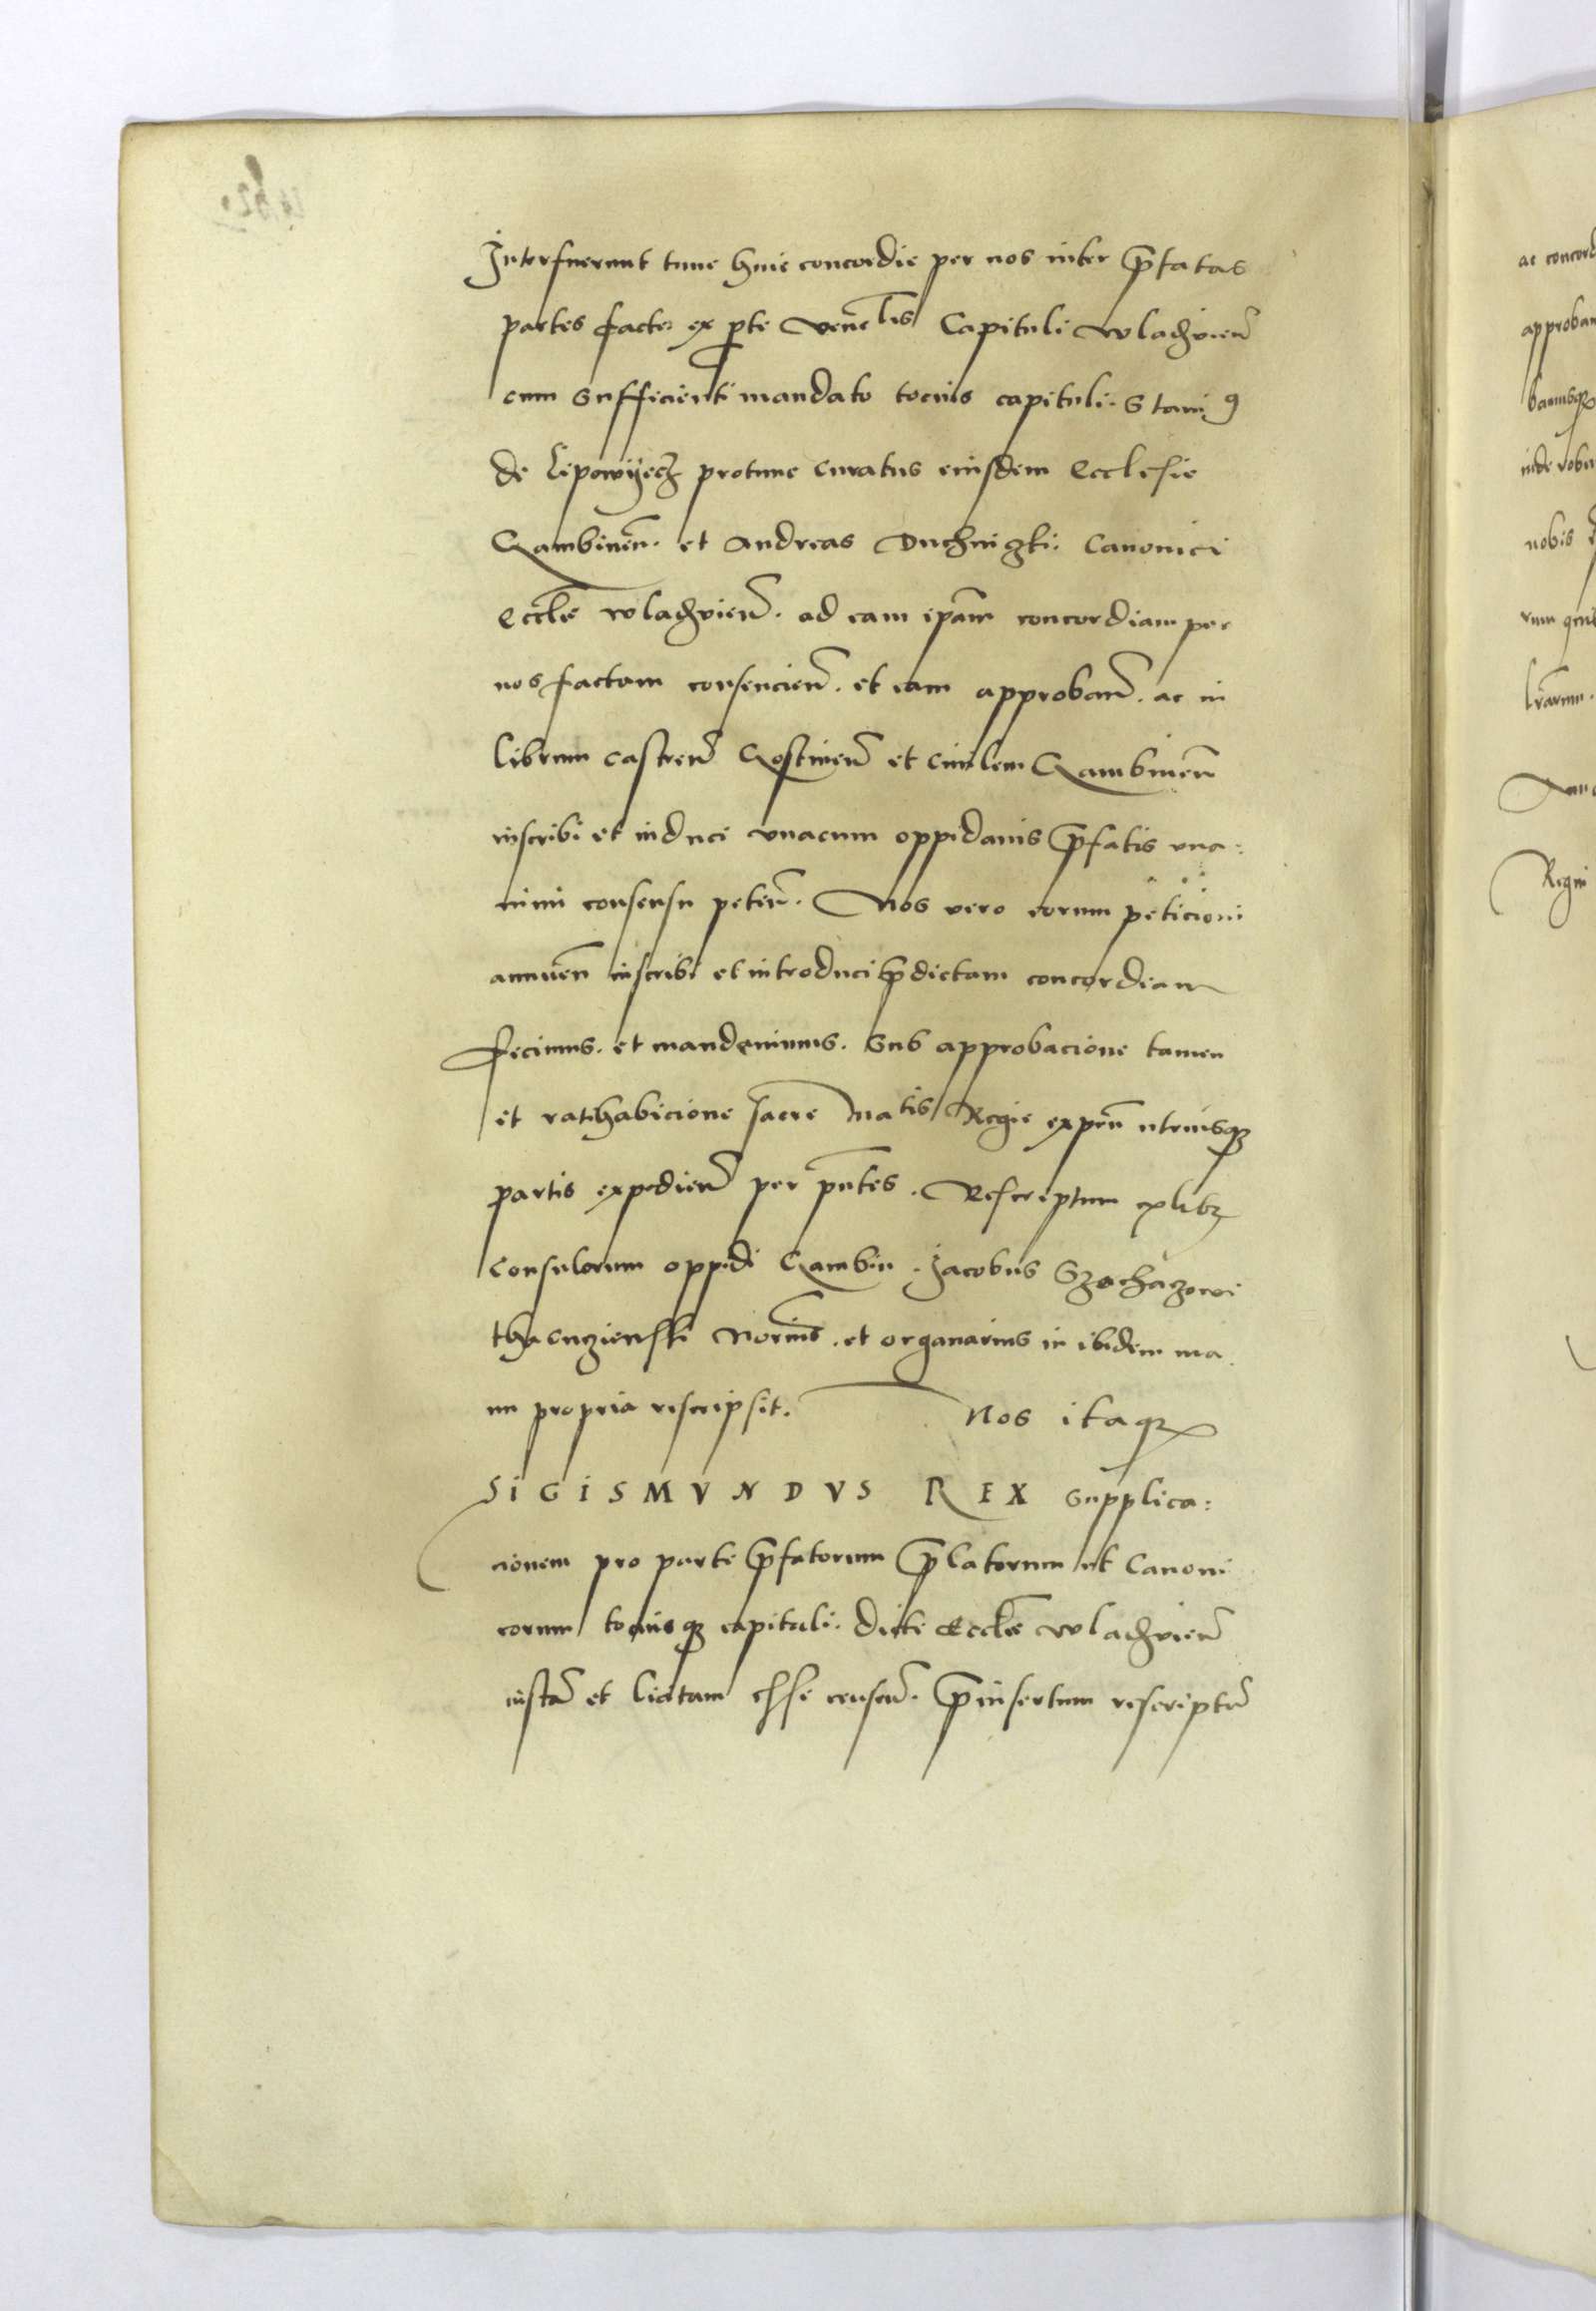 Interfuerunt tunc huic concordie per nos inter p̄fatas
partes facte ex p̄te venēlis Capituli wladzvien̄
cum sufficienti mandato tocius capituli. Stani9
de Lipowyecz protunc curatus eiusdem Ecclesie
Qambinen̄. et Andreas Duchnizki. Canonici
Eccl̄e wladzvien̄. ad eam ip̄am concordiam per
nos factam consencien̄. et eam approban̄. ac in
librum castren̄ Gostinen̄ et Ciuilem Qambinen̄
inscribi et induci vnacum oppidanis p̄fatis vna:
nimi consensu peten̄. Nos vero eorum peticioni
annuen̄ inscribi et introduci p̄dictam concordiam
fecimus. et mandauimus. Sub approbacione tamen
et ratihabicione sacre Matis Regie expen̄ utriusq3
partis expedien̄ per pn̄tes. Rescriptum ex lib3
Consularum oppidi Qambin. Jacobus
Norius̄. et organarius in ibidem ma
nu propria rescripsit. Nos itaq3
SIGISMVNDVS REX supplica:
cionem pro parte p̄fatorum p̄latorum et Canoni
corum tociusq3 capituli. dicte Eccl̄e wladzvien̄
iustā et licitam esse censen̄. p̄insertum rescriptū
ac concord
approban
inde robu
nobis
Regni